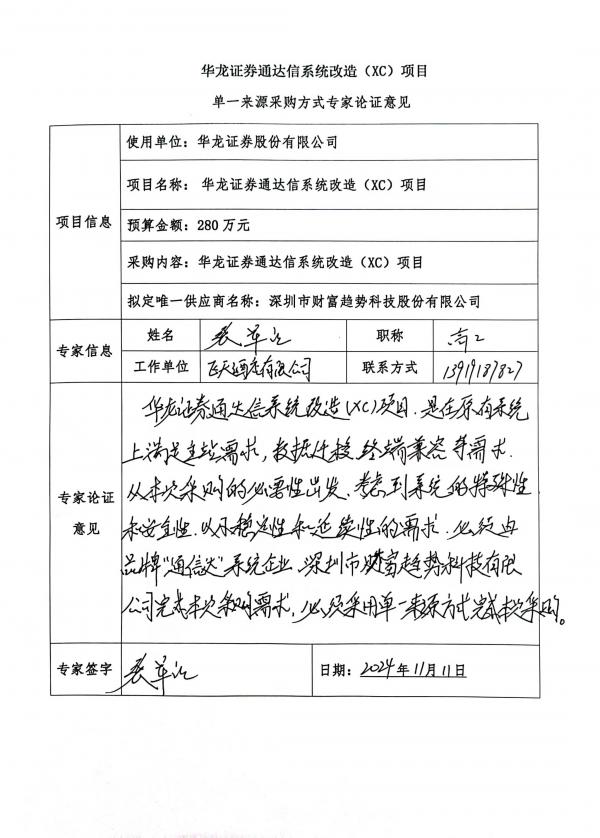 华龙证券通达信系统改造（XC）项目
单一来源采购方式专家论证意见
项目信息
使用单位：华龙证券股份有限公司
项目名称： 华龙证券通达信系统改造（XC）项目
预算金额：280万元
采购内容：华龙证券通达信系统改造（XC）项目
拟定唯一供应商名称：深圳市财富趋势科技股份有限公司
专家信息
姓名
职称
高工
工作单位
飞天酒店有限公司
联系方式
13919187827
专家论证
意见
华龙证券通达信系统改造(XC)项目.是在原有系统
上满足主站需求,数据迁移.终端兼容等需求.
从本次采购的必要性出发、考虑到系统的特殊性
和安全性.以及稳定性和延续性的需求.必须由
品牌"通信达"系统企业、深圳市财富趋势科技有限
公司完成本次采购需求,必须采用单一来源方式完成本次采购。
专家签字
日期：2024年11月11日